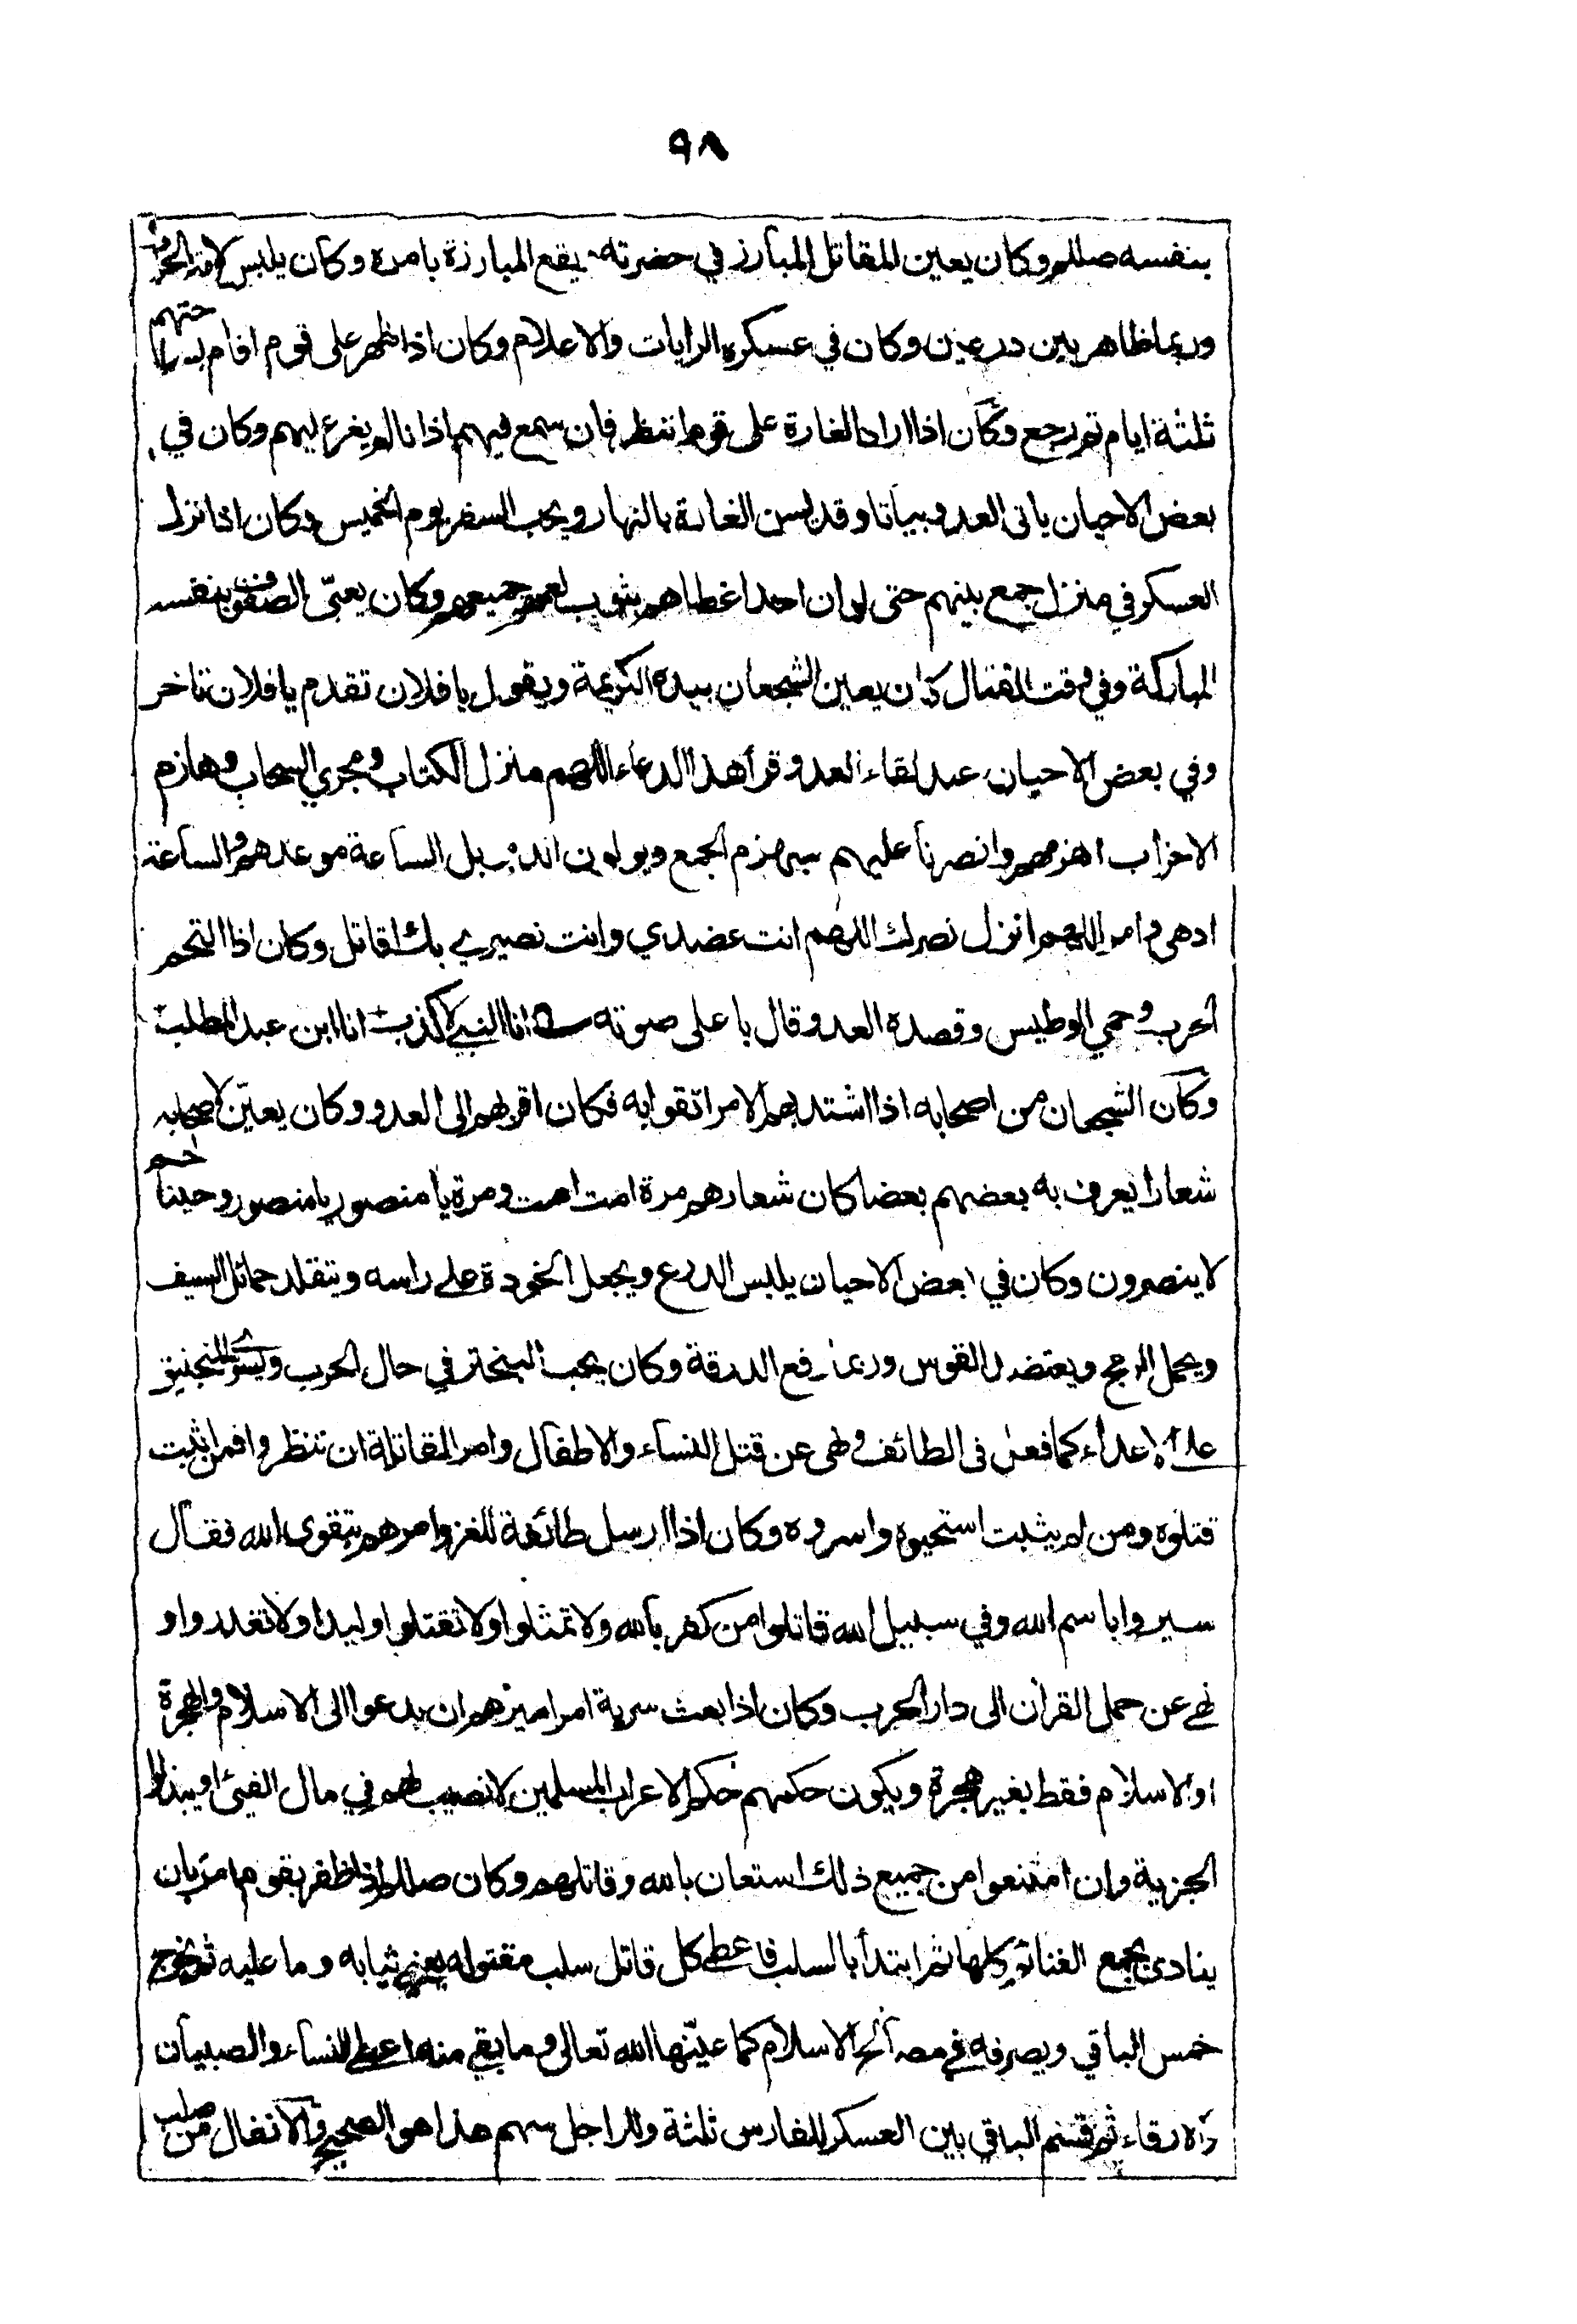 ٩٨
بنفسه صللم وكان يعين المقاتل المبارز في حضرته يقع المبارزة بامره وكان يلبس لامة الحرب
وربما ظاهر بين درعين وكان في عسكره الرايات والاعلام وكان اذا ظهر على قوم اقام بساحتهم
ثلثة ايام ثم رجع وكان اذا اراد الغارة على قوم انتظر فان سمع فيهم اذانا لم يغر عليهم وكان في
بعض الاحيان ياتى العدو بياتا وقد يسن الغارة بالنهار ويحب السفر يوم الخميس وكان اذا نزل
العسكر في منزل جمع بينهم حتى لو ان احدا غطاهم بثوب لعمهم جميعهم وكان يعبّى الصفوف بنفسه
المباركة وفي وقت القتال كان يعين الشجعان بيده الكريمة ويقول يا فلان تقدم يا فلان تاخر
وفي بعض الاحيان عند لقاء العدو قرأ هذا الدعاء اللهم منزل الكتاب ومجري السحاب وهازم
الاحزاب اهزمهم وانصرنا عليهم سيهزم الجمع ويولون الدبر بل الساعة موعدهم والساعة
ادهى وامر اللهم انزل نصرك اللهم انت عضدي وانت نصيري بك اقاتل وكان اذا التحم
الحرب وحمي الوطيس وقصده العدو قال باعلى صوته انا النبي لا كذب انا ابن عبد المطلب
وكان الشجعان من اصحابه اذا اشتد بهم الامر اتقوا به فكان اقربهم الى العدو وكان يعيّن لاصحابه
شعارا يعرف به بعضهم بعضا كان شعارهم مرة امت امت ومرة يا منصور يا منصور وحينا حم
لا ينصرون وكان في بعض الاحيان يلبس الدرع ويجعل الخودة على راسه ويتقلد حمائل السيف
ويحمل الرمح ويعتضد القوس وربما رفع الدرقة وكان يحب التبختر في حال الحرب المنجنيق
على الاعداء كما فعل فى الطائف ونهى عن قتل النساء والاطفال وامر المقاتلة ان تنظروا فمن ثبت
قتلوه ومن لم يثبت استحيوه واسروه وكان اذا ارسل طائفة للغزو امرهم بتقوى الله فقال
سيروا باسم الله وفي سبيل الله قاتلوا من كفر بالله ولا تمثلوا ولا تقتلوا وليدا ولا تغدروا و
نهى عن حمل القرآن الى دار الحرب وكان اذا بعث سرية امر اميرهم ان يدعوا الى الاسلام والهجرة
او الاسلام فقط بغير هجرة ويكون حكمهم حكم الاعراب المسلمين لا نصيب لهم في مال الفيئ او يبذلوا
الجزية وان امتنعوا من جميع ذلك استعان بالله وقاتلهم وكان صللم اذا ظفر بقوم امر بان
ينادى بجمع الغنائم كلها ثم ابتدأ بالسلب فاعطى كل قاتل سلب مقتوله يعني ثيابه وما عليه ثم يخرج
خمس الباقي ويصرفه في مصالح الاسلام كما عيّنها الله تعالى وما بقي منه اعطى للنساء والصبيان
والارقاء ثم قسم الباقي بين العسكر للفارس ثلثة وللراجل سهم هذا هو الصحيح والانفال من صلب